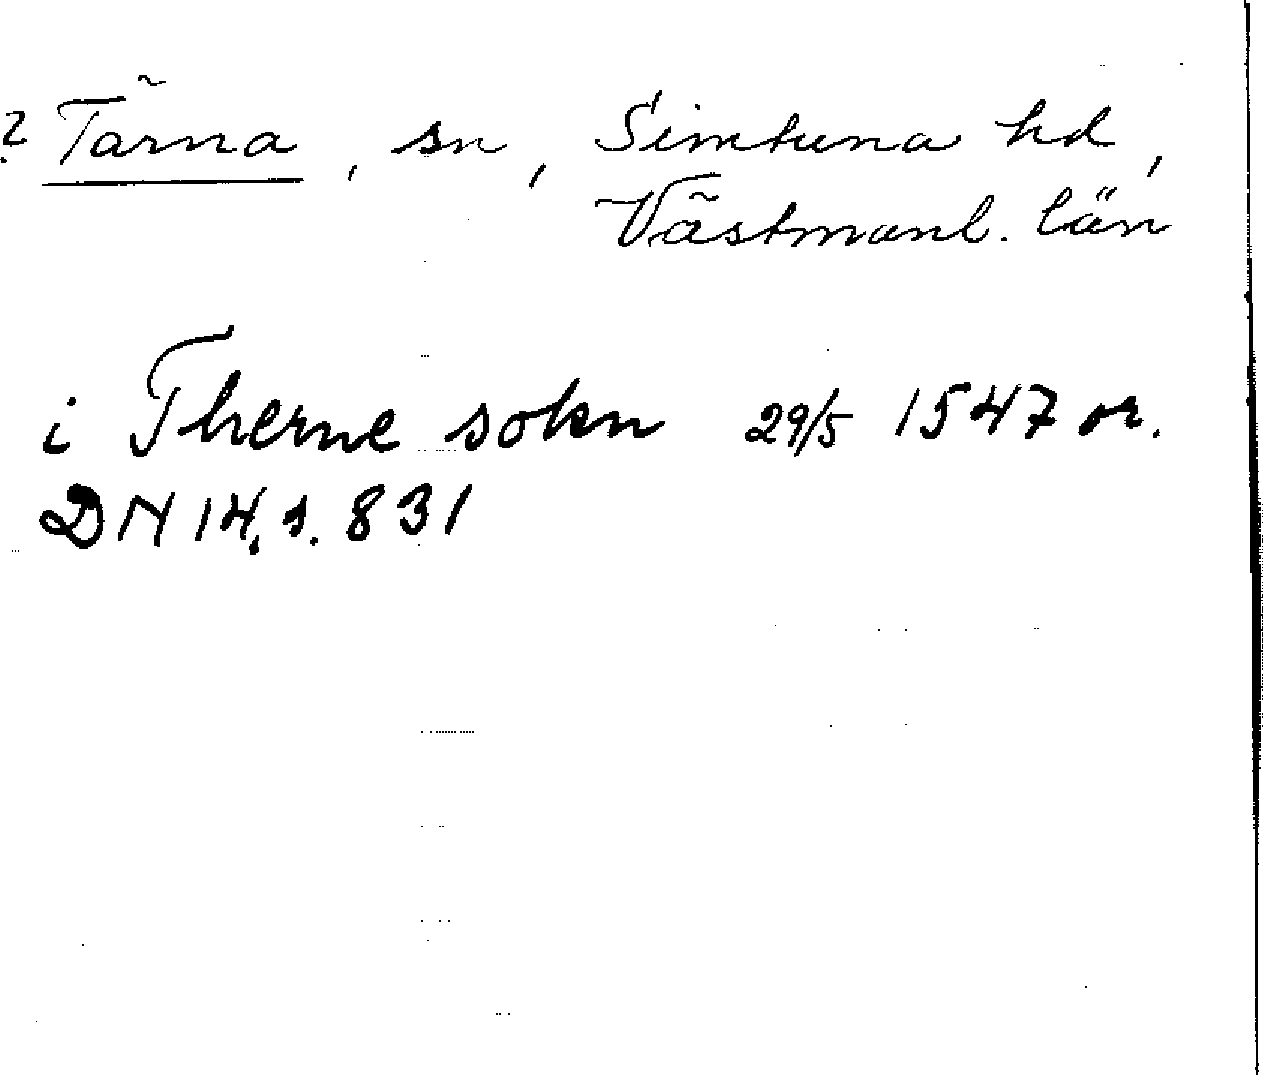 ? Tärna, sn, Simtuna hd,
Västmanl. län
i Therne sokn 29/5 1547 or.
DN 14, s. 831